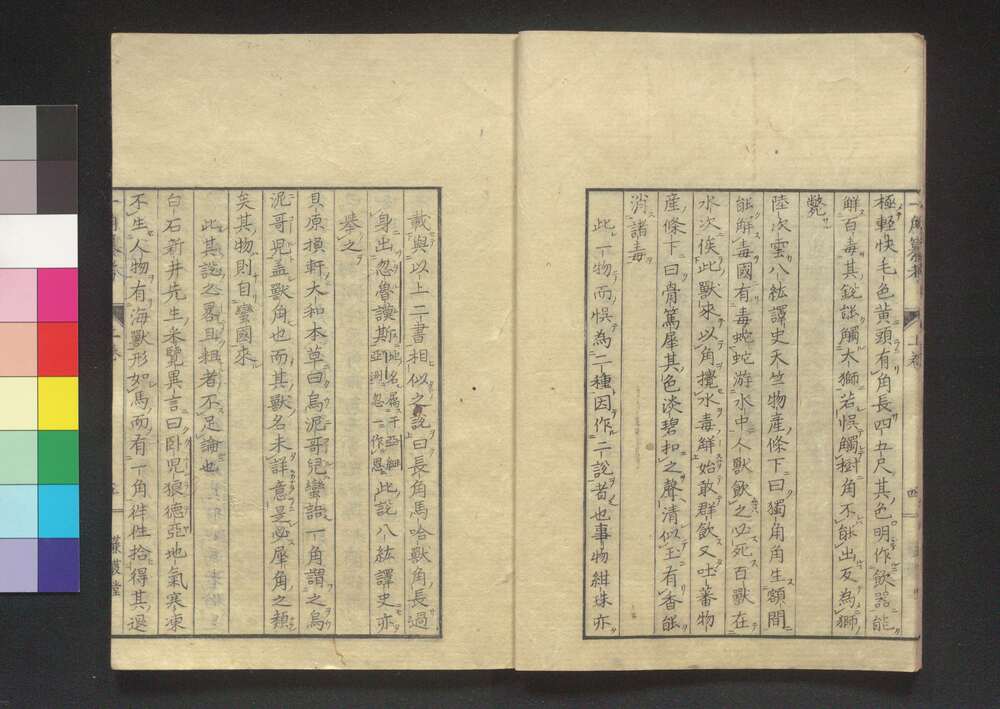 極輕快毛色黄頭有角長四五尺其色明作飲器能
解百毒其銳能觸大獅若悞觸樹角不能出反為獅
斃
陸次雲八紘譯史天竺物産條下曰獨角角生額間
能解毒國有毒蛇蛇游水中人獸飲之必死百獸在
水次俟此獸來以角攪水毒解始敢群飲又吐蕃物
産條下曰骨篤犀其色淡碧扣之聲清似玉有香能
消諸毒
此一物而悞為二種因作二說者也事物紺珠亦
載與以上二書相似之說曰長角馬哈獸角長過
身出忽魯謨斯地名属于亞細亞洲忽一作思此說八紘譯史亦
挙之
貝原損軒大和本草曰烏泥哥兒蠻語一角謂之烏
泥哥兒盖獸角也而其獸名未詳意是必犀角之類
矣其物則自蠻國來
此其說之畧且粗者不足論也
白石新井先生采覽異言曰臥兒狼德亞地氣寒凍
不生人物有海獸形如馬而有一角往往拾得其退